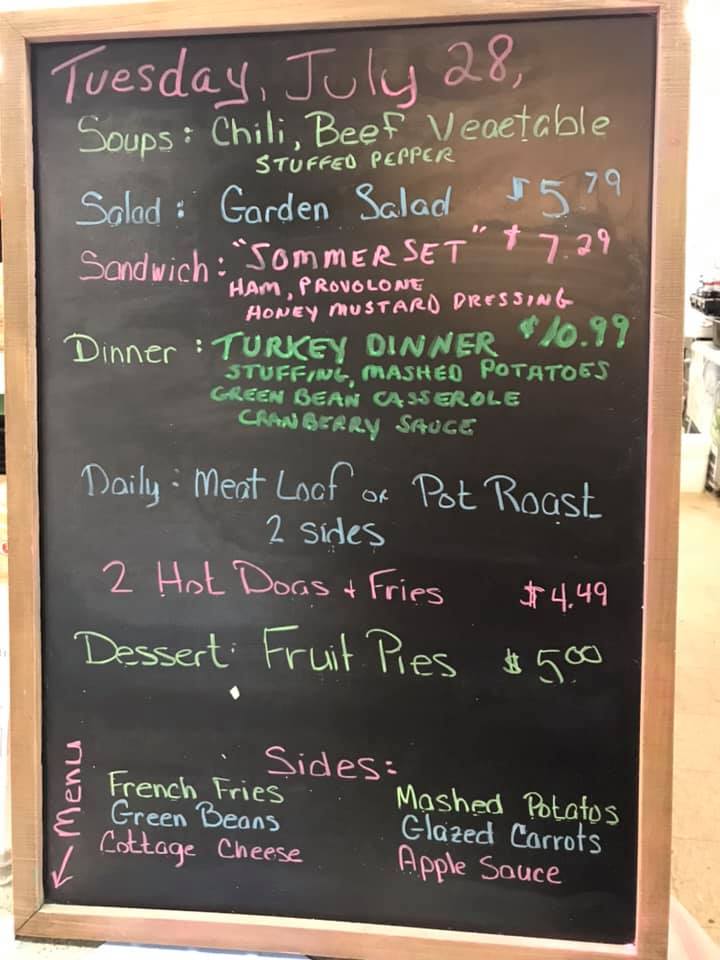 Tuesday, July 28,
Soups: Chili, Beef Vegetable
STUFFED PEPPER
Salad: Garden Salad $5.79
Sandwich: "SOMMERSET" $7.29
HAM, PROVOLONE
HONEY MUSTARD DRESSING
Dinner: TURKEY DINNER $10.99
STUFFING, MASHED POTATOES
GREEN BEAN CASSEROLE
CRANBERRY SAUCE
Daily: Meat Loaf or Pot Roast
2 sides
2 Hot Dogs + Fries $4.49
Dessert: Fruit Pies $5.00
Sides:
French Fries
Green Beans
Cottage Cheese
Mashed Potatos
Glazed Carrots
Apple Sauce
← Menu